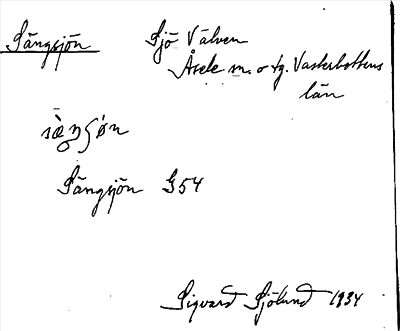 Sängsjön Sjö Välven
Åsele sn. o tg. Västerbottens
län
Sängsjön G54
Sigvard Sjölund 1934